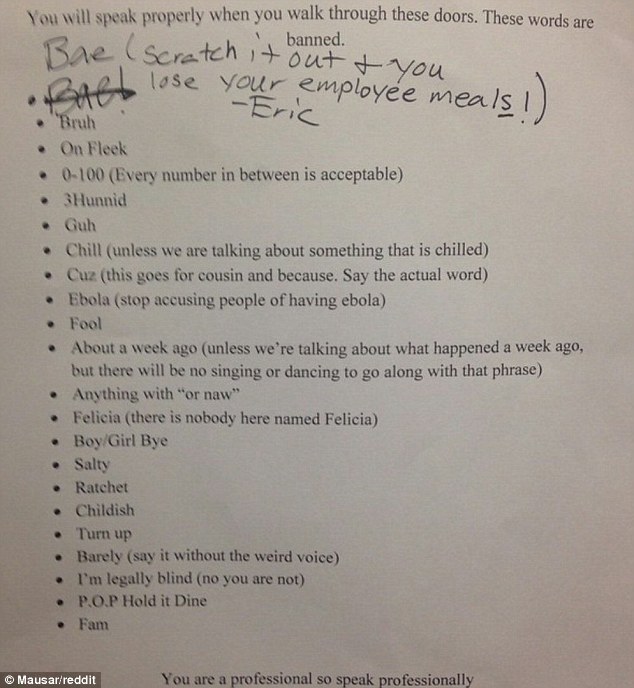 You will speak properly when you walk through these doors. These words are
banned.
Bae (scratch it out + you
lose your employee meals!)
-Eric
• Bae
• Bruh
• On Fleek
• 0-100 (Every number in between is acceptable)
• 3Hunnid
• Guh
• Chill (unless we are talking about something that is chilled)
• Cuz (this goes for cousin and because. Say the actual word)
• Ebola (stop accusing people of having ebola)
• Fool
• About a week ago (unless we're talking about what happened a week ago,
but there will be no singing or dancing to go along with that phrase)
• Anything with "or naw"
• Felicia (there is nobody here named Felicia)
• Boy/Girl Bye
• Salty
• Ratchet
• Childish
• Turn up
• Barely (say it without the weird voice)
• I'm legally blind (no you are not)
• P.O.P Hold it Dine
• Fam
You are a professional so speak professionally
© Mausar/reddit